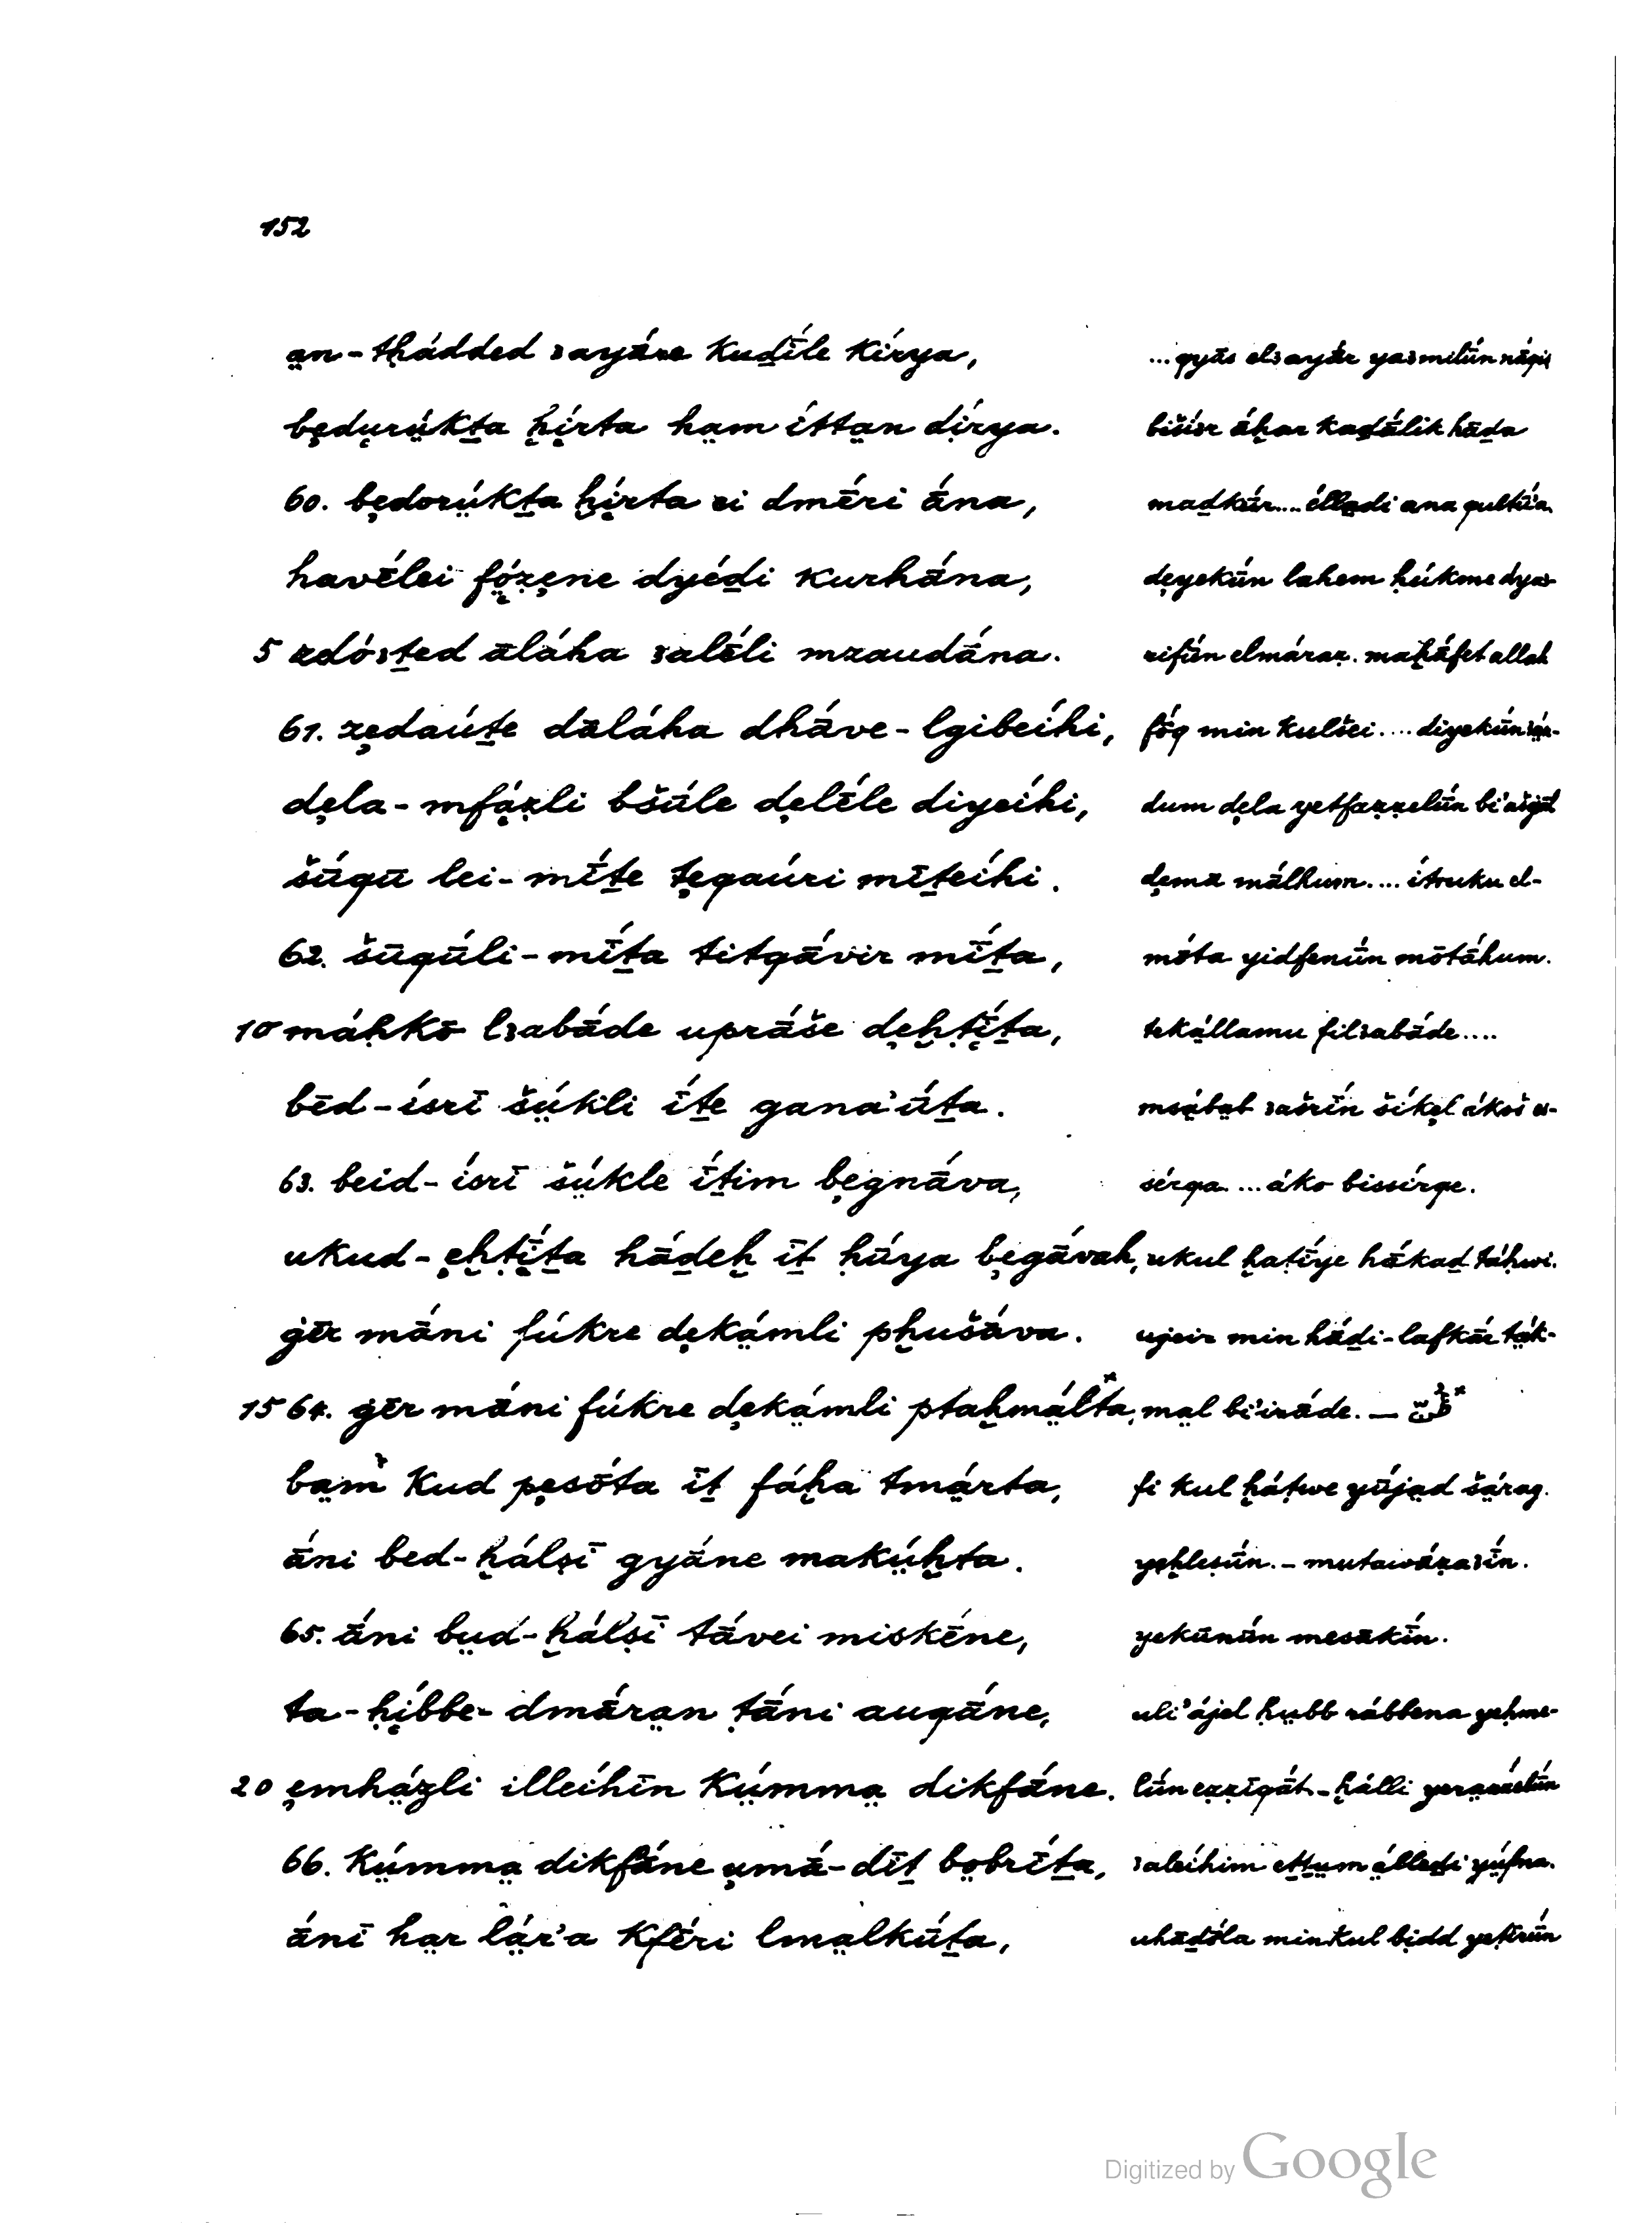 152
a̤n-tḥádded ꜥayā́re kuḏī́le kírya, ... qyās elꜥayā́r yaꜥmilū́n nā́qiṣ
bẹdụrṳ́kṯa ḫị́rta ha̤m íttan dírya. bišíꜥr ā́ḫar kaḏā́lik hāḏa
60. bẹdorṳ́kṯa ḫị́rta ei dmḗri ā́na, maḏkū́r.... élla̤di ana qultū́a.
havḗlei fọ́ẓẹne dyéḏi kurhā́na, dẹyekū́n lahem ḥúkme dyaꜥ-
5 zdóꜥṯed ālā́ha ꜥalḗli mzaudā́na. rifū́n elmáraẓ. maḫā́fet allah
61. zẹdaúṯe dālā́ha dhā́ve-lgibeíhi, fṓq min kulšei .... diyekū́n ꜥán-
dẹla-mfạ́ẓli bšū́le dẹlḗle diyeíhi, dum dẹla yetfaẓẓelū́n bi'ašġā́l
šū́qū lei-mī́ṯe ṯẹqaúri mīṯeíhi. dẹmā mālhum.... ítruku el-
62. šūqū́li-mī́ṯa titqā́vir mī́ṯa, mṓta yidfenū́n mōtā́hum.
10 máḥkō lꜥabā́de uprā́še dẹḫṭị́ṯa, tekạ́llamu filꜥabā́de....
bēd-íꜥrī šṳ́kli ī́ṯe gana'ū́ṯa. msạ́ba̤b ꜥašrī́n šíkẹl ákoš es-
63. beid-ísrī šṳ́kle ī́ṯim bẹgnā́va, sérqa. ... áko bissírqe.
ukud-ẹḫṭị́ṯa hā́ḏeḫ īṯ ḥū́ya bẹgā́vaḥ, ukul ḫaṭī́ye hā́kaḏ táḥwi.
ġēr mā́ni fúkre dẹkạ́mli pḫušā́va. uġeir min hā́ḏi-lafkā́r ták-
15 64. ġēr mā́ni fúkre dẹkạ́mli ptaḫmạ́lta,ˣ ma̤l bi'irā́de. — ظنّ ˣ
ba̤m kud pẹsṓta īṯ fáḫa tmạ́rta, fi kul ḫáṭwe yū́ja̤d šạ́rag.
ā́ni bed-ḫálṣī gyā́ne makṳ́ḫta. yẹḫleṣū́n. — mutawáẓaꜥīn.
65. ā́ni bṳd-ḫálṣī tā́vei miskḗne, yekūnū́n mesākī́n.
ta-ḥíbbe-dmā́ra̤n ṭā́ni auqā́ne, uli'ájel ḥṳbb rábbena yeḥme-
20 ẹmhạ́ẓli illeíhīn kṳ́mma̤ dikfā́ne. lū́n eẓẓīqā́t.-ḫálli
66. kṳ́mma̤ dikfā́ne ụmā́-dīṯ bo̤brī́ṯa, ꜥaleíhim eṯṯṳm élleḏi yúfna.
ā́nī ha̤r lạ́r'a kfḗri lma̤lkū́ṯa, uhāḏṓla min kul bidd yeṭīrū́n
Digitized by Google